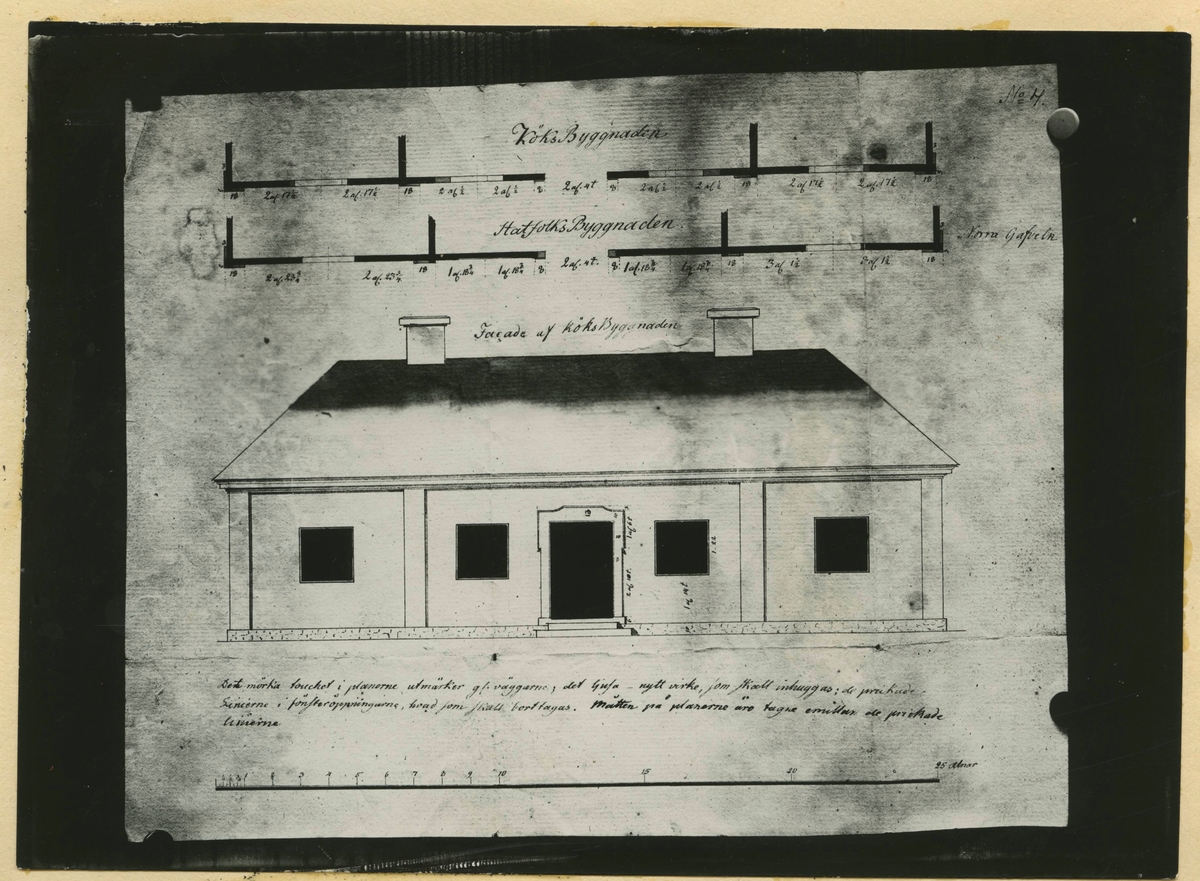 No 4.
KöksByggnaden
18 2 al. 17½ 2 al. 17½ 18 2 al ½ 2 al ½ 8 2 al. 4t 8 2 al ½ 2 al ½ 18 2 al 17½ 2 al. 17½ 18
StatfolksByggnaden
Norra Gafveln
18 2 al. 23¾ 2 al. 23¾ 18 1 al. 18¾ 1 al. 18¾ 8 2 al. 4t. 8 1 al. 18¾ 1 al. 18¾ 18 3 al. 1½ 3 al. 1½ 18
Façade af KöksByggnaden
Det mörka touchet i planerne utmärker gl: väggarne; det ljusa - nytt virke, som skall inhuggas; de prickade
Linierne i fönsteröppningarne, hvad som skall borttagas. Måtten på planerne äro tagne emillan de prickade
linierne
1 2 3 4 5 6 7 8 9 10 15 20 25 Alnar